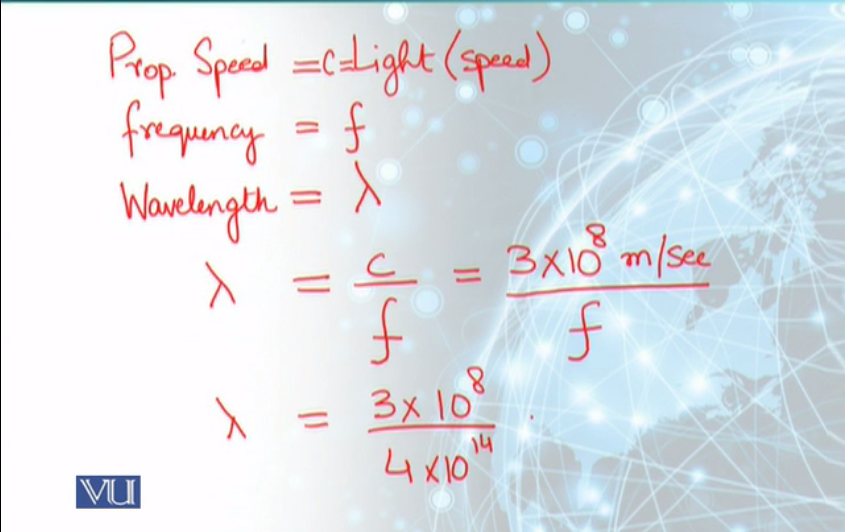 Prop. Speed = c = Light (speed)
frequency = f
Wavelength = λ
λ = c/f = 3×10⁸ m/sec / f
λ = 3×10⁸ / 4×10¹⁴ .
VU